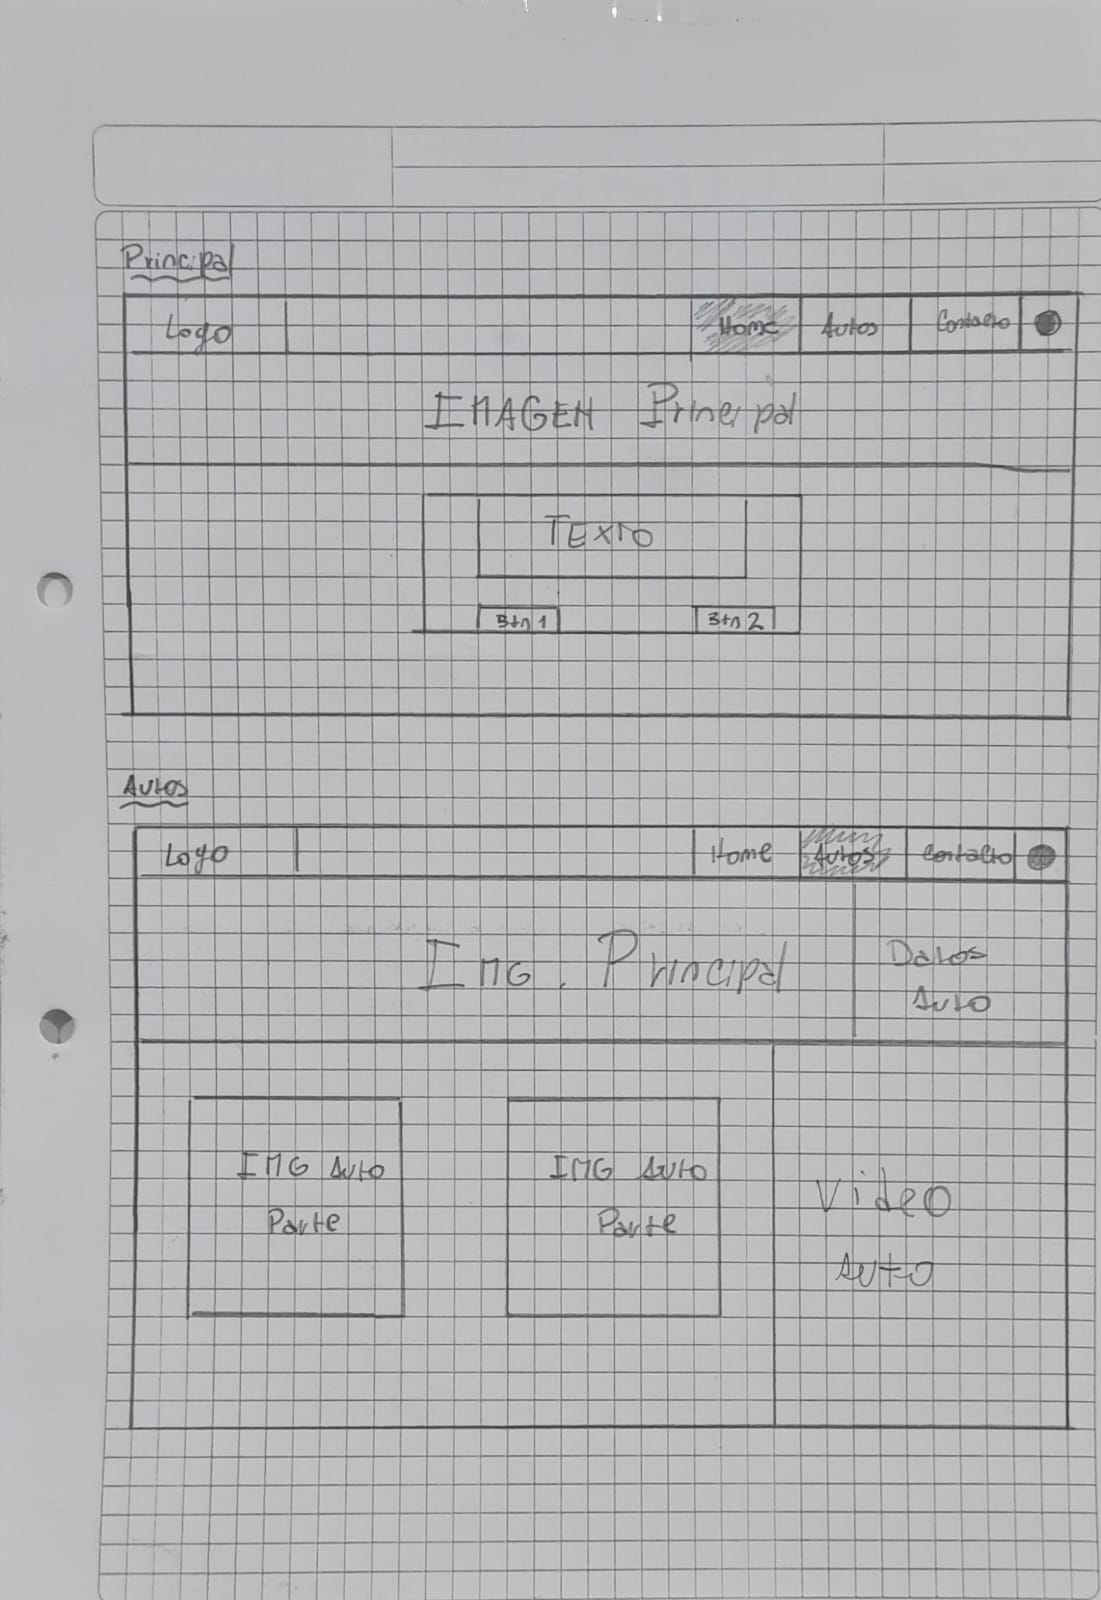 Principal
Logo Home Autos Contacto
IMAGEN Principal
TEXTO
Btn 1 Btn 2
Autos
Logo Home Autos Contacto
IMG. Principal
Datos
Auto
IMG Auto
Parte
IMG Auto
Parte
Video
Auto